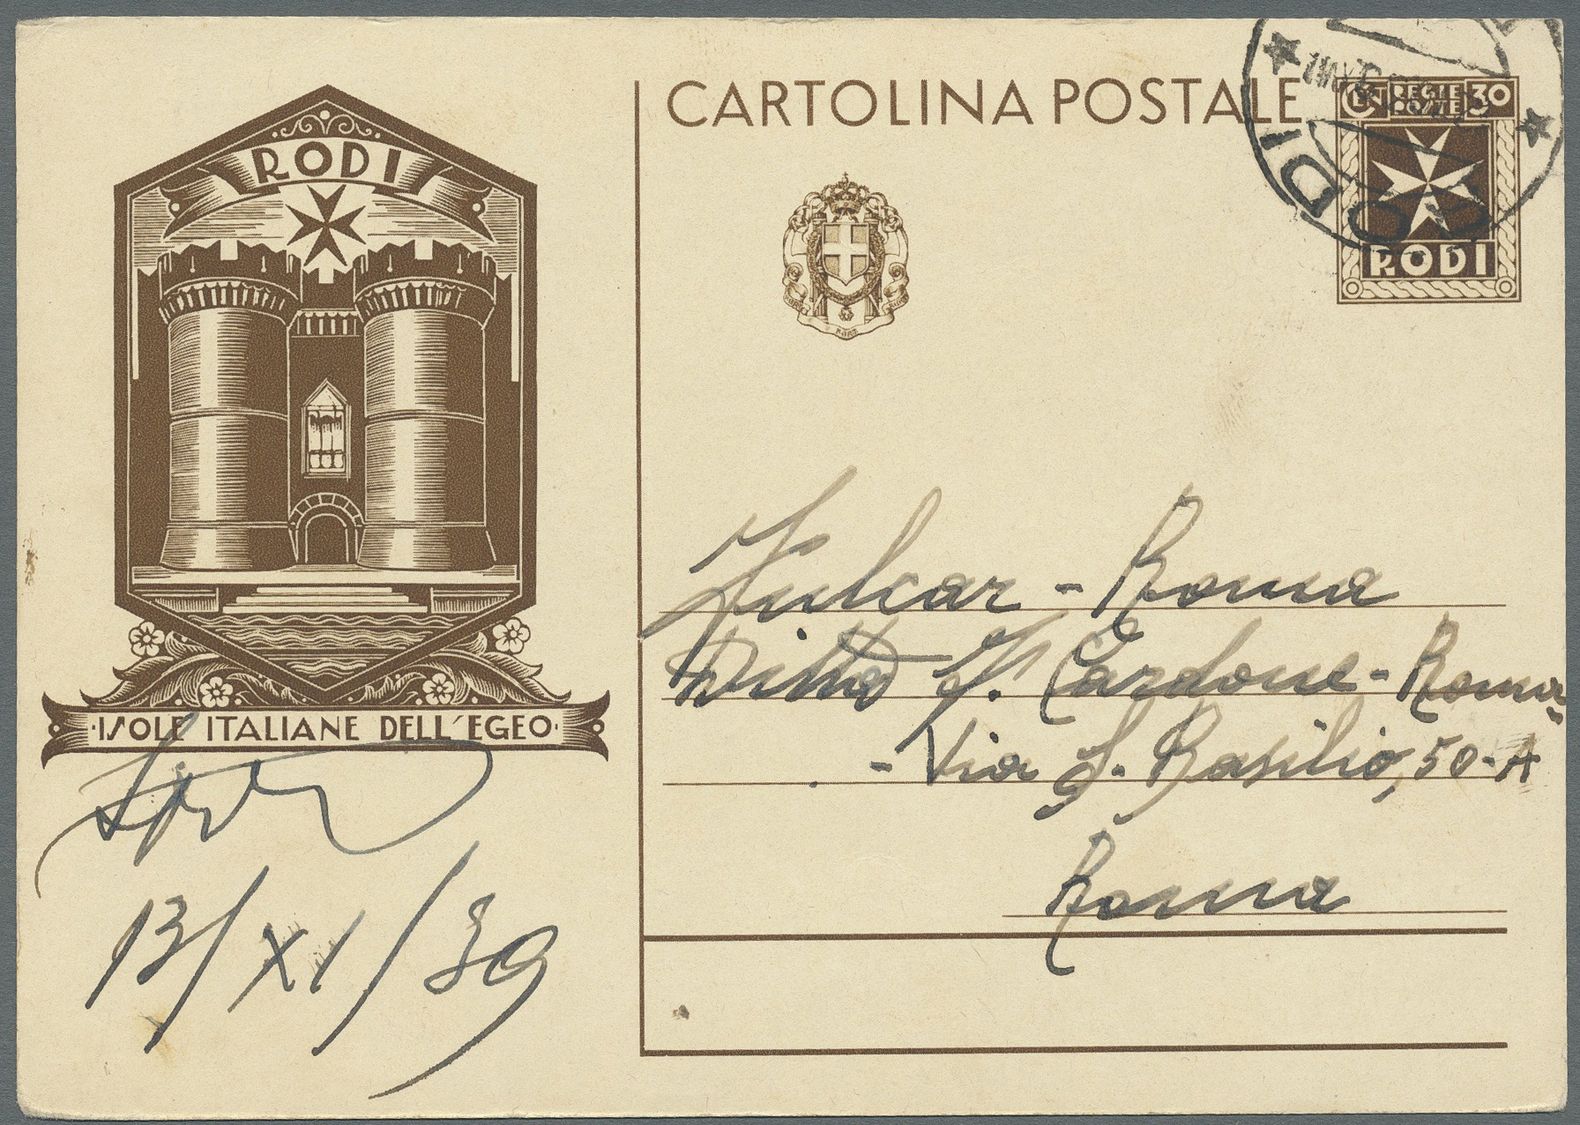 CARTOLINA POSTALE
CT REGIE POSTE 30
RODI
RODI
RODI
ISOLE ITALIANE DELL'EGEO
13/XI/39
Julcar - Roma
Ditta G. Cardone - Roma
- Via S. Basilio, 50-A
Roma